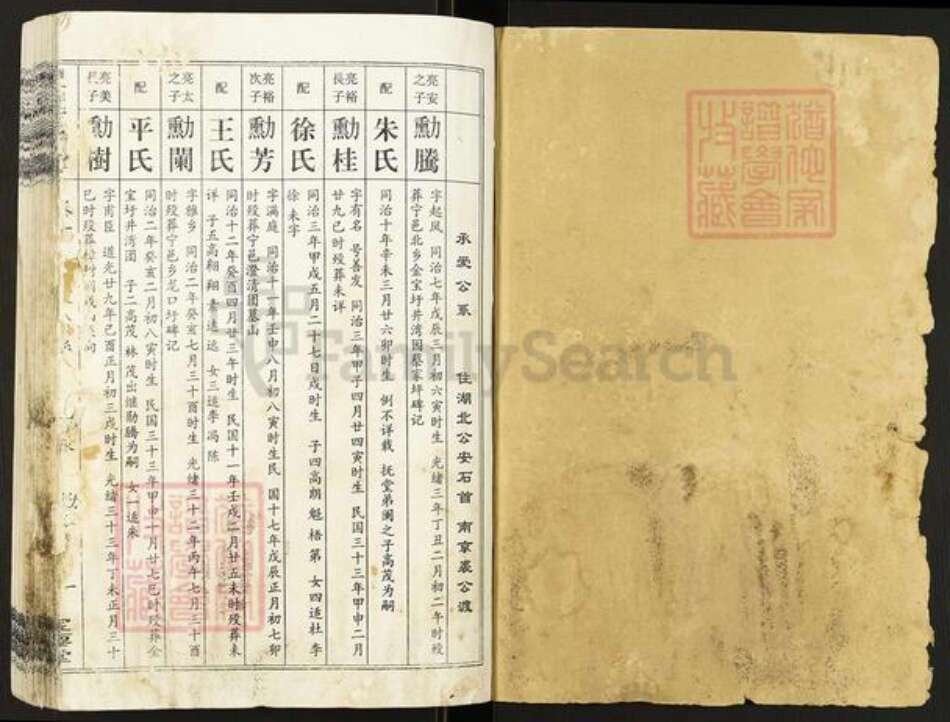 承爱公系 住湖北公安石首 南京裘公渡
亮安之子
勳騰
字起凤 同治七年戊辰三月初六寅时生 光绪三年丁丑二月初二午时殁
葬宁邑北乡金宝圩井湾团蔡家坪碑记
配
朱氏
同治十年辛未三月廿六卯时生 例不详载 抚堂弟阑之子高茂为嗣
亮裕長子
勳桂
字有名 号善发 同治三年甲子四月廿四寅时生 民国三十三年甲申二月
廿九巳时殁葬未详
配
徐氏
同治三年甲戌五月二十七日戌时生 子四高朗 魁 梧 第 女四适杜 李
徐 未字
亮裕次子
勳芳
字满庭 同治十一年壬申八月初八寅时生民国十七年戊辰正月初七卯
时殁葬宁邑澄清团墓山
配
王氏
同治十二年癸酉四月廿三午时生 民国十一年壬戌二月廿五未时殁葬未
详 子五高翱 翔 素 远 女三适李 冯 陈
亮太之子
勳闌
字雅乡 同治二年癸亥七月三十酉时生 光绪三十二年丙午七月三十酉
时殁葬宁邑乡龙口圩碑记
配
平氏
同治二年癸亥二月初八寅时生 民国三十三年甲申十月廿七巳时殁葬金
宝圩井湾团 子二高茂 林 茂出继勋腾为嗣 女一适朱
亮美長子
勳樹
字甫臣 道光廿九年己酉正月初三戌时生 光绪三十三年丁未正月三十
巳时殁葬
FamilySearch